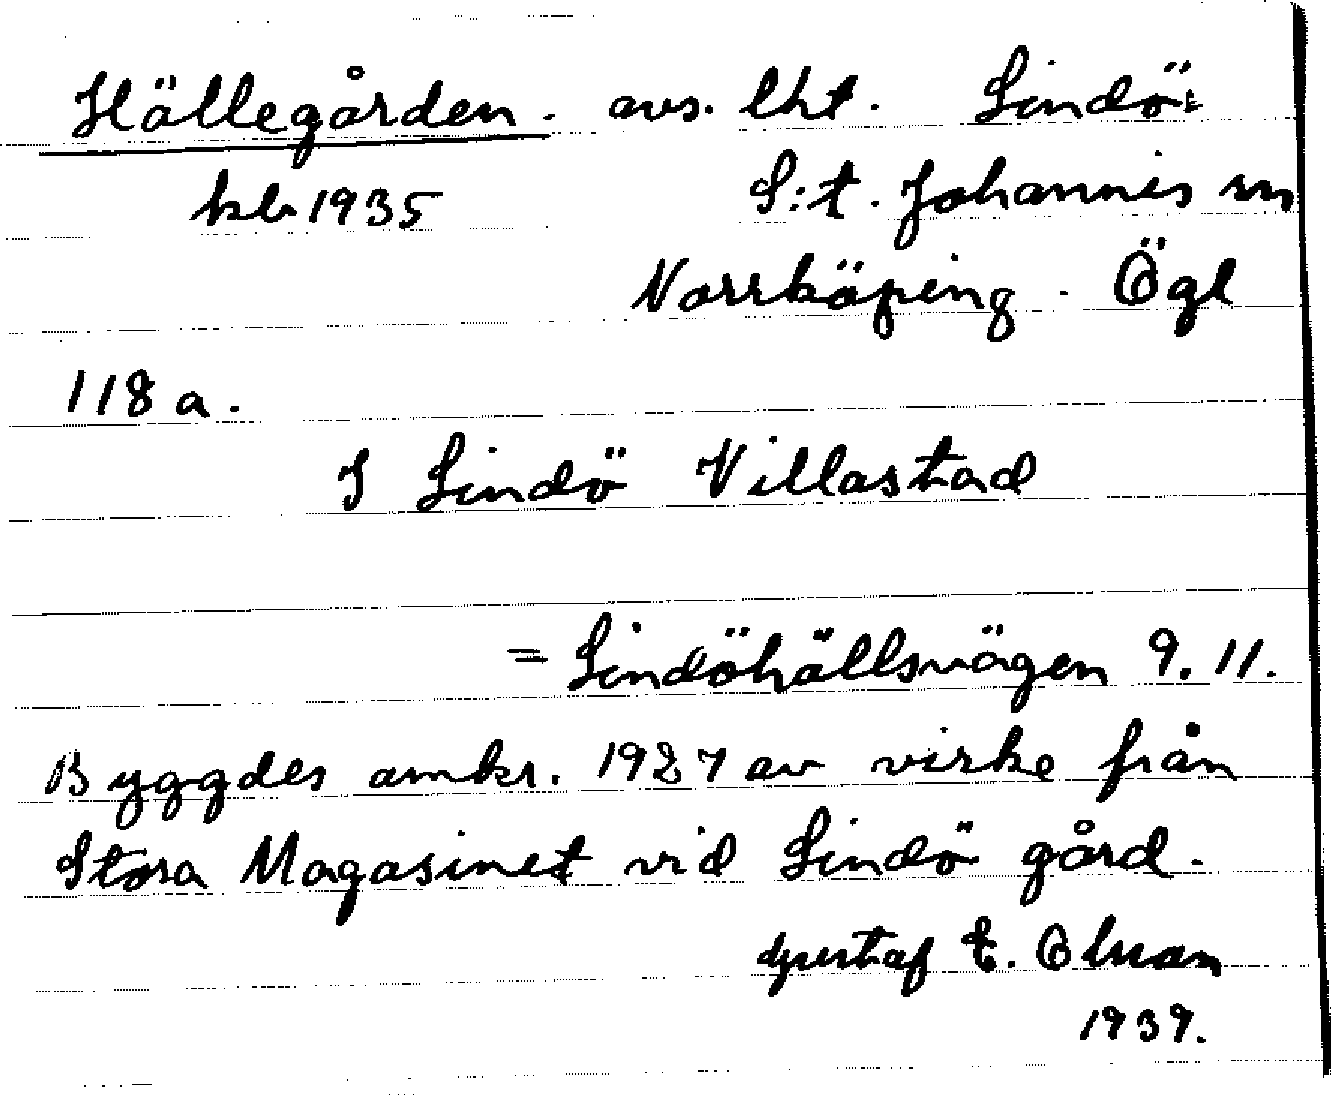 Hällegården. avs. lht. Lindö:
kb 1935 S:t. Johannis sn
Norrköping. Ögl
118 a.
I Lindö Villastad
= Lindöhällsvägen 9. 11.
Byggdes omkr. 1927 av virke från
Stora Magasinet vid Lindö gård.
Gustaf E. Olson
1939.